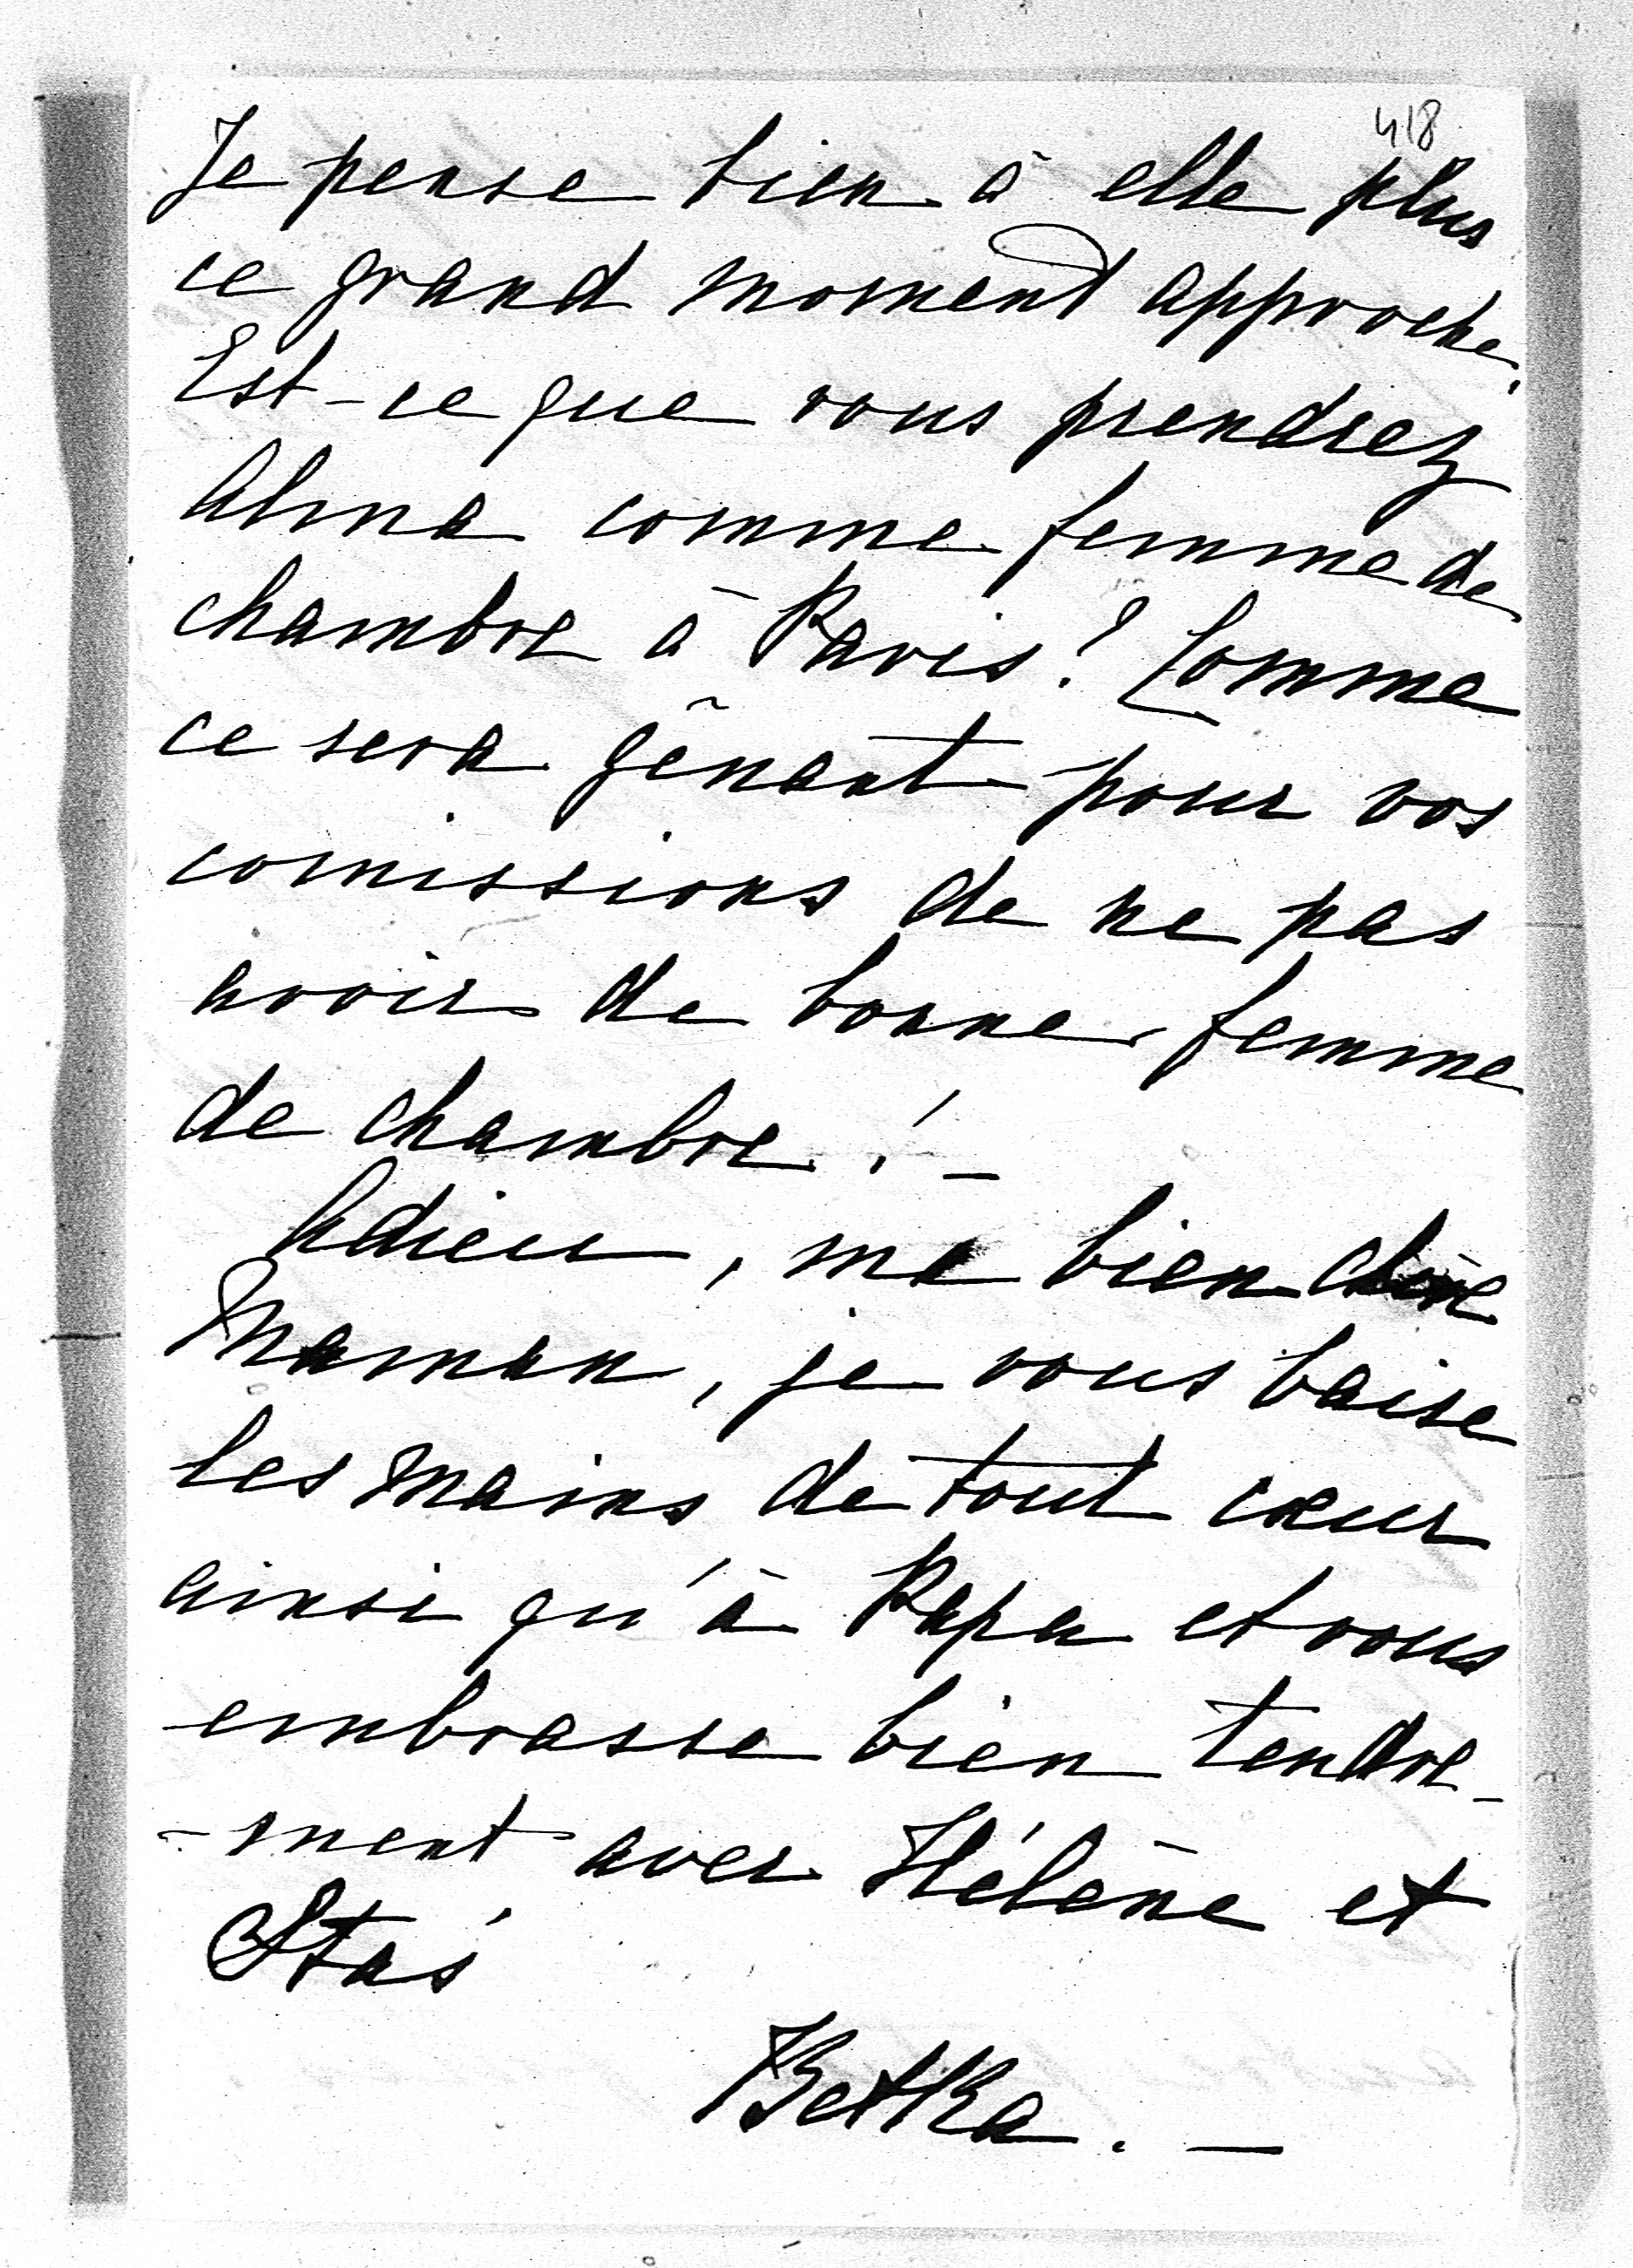 418
Je pense bien à elle plus
ce grand moment approche.
Est-ce que vous prendrez
Alma comme femme de
chambre à Paris? Comme
ce sera gênant pour vos
comissions de ne pas
avoir de bonne femme
de chambre! –
Adieu, ma bien chère
Maman, je vous baise
les mains de tout cœur
ainsi qu'à Papa et vous
embrasse bien tendre-
-ment avec Hélène et
Staś
Betka. –